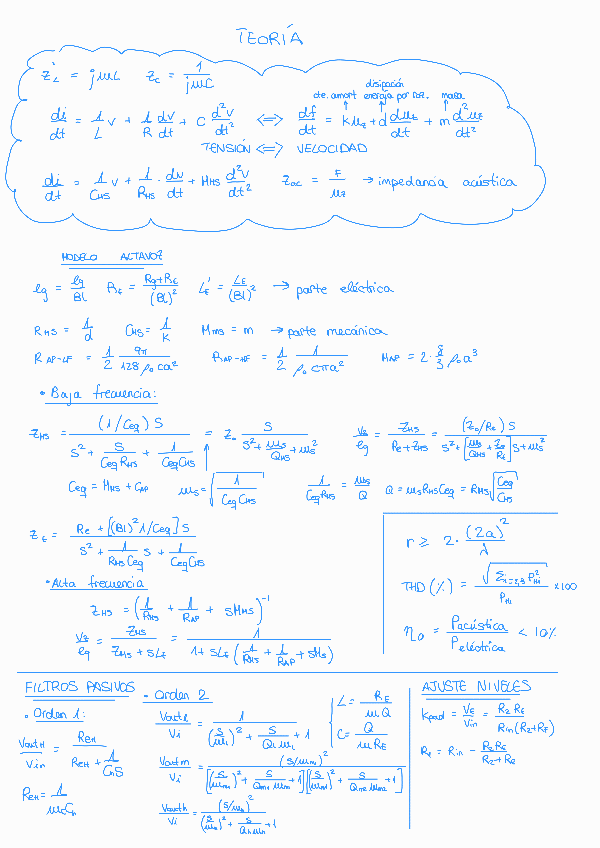 TEORÍA
Z'_L = jωL   Z_C = 1/(jωC)
disipación
cte. amort   energía por roz.   masa
di/dt = (1/L) v + (1/R) dv/dt + C d²v/dt² <=> df/dt = k u_z + d du_z/dt + m d²u_z/dt²
TENSIÓN <=> VELOCIDAD
di/dt = (1/C_MS) v + (1/R_MS) · dv/dt + M_MS d²v/dt²   Z_ac = F/u_z → impedancia acústica
MODELO ALTAVOZ
eg = eg/Bl   R_E = (Rg+R_E)/(Bl)²   L_E' = L_E/(Bl)² → parte eléctrica
R_MS = 1/d   C_MS = 1/k   M_MS = m → parte mecánica
R_AP-LF = (1/2) 9π/(128 ρ₀ca²)   R_AP-HF = (1/2) 1/(ρ₀cπa²)   M_AP = 2·(8/3) ρ₀a³
• Baja frecuencia:
Z_MS = (1/Ceq) S / (S² + S/(Ceq R_MS) + 1/(Ceq C_MS)) = Z₀ S/(S² + ω_s/Q_MS + ω_s²)   v_z/eg = Z_MS/(R_E+Z_MS) = (Z₀/R_E) S / (S² + [ω_s/Q_MS + Z₀/R_E] S + ω_s²)
Ceq = M_MS + C_AP   ω_s = √(1/(Ceq C_MS))   1/(Ceq R_MS) = ω_s/Q   Q = ω_s R_MS Ceq = R_MS √(Ceq/C_MS)
Z_E = R_E + [(Bl)² 1/Ceq] S / (S² + 1/(R_MS Ceq) S + 1/(Ceq C_MS))
r ≥ 2 · (2a)²/λ
• Alta frecuencia
THD (%) = √(Σ_{i=2,3} P²_Hi) / P_H1 × 100
Z_MS = (1/R_MS + 1/R_AP + S M_MS)⁻¹
v_z/eg = Z_MS/(Z_MS + S L_E) = 1/(1 + S L_E (1/R_MS + 1/R_AP + S M_S))
η₀ = Pacústica/Peléctrica < 10%
FILTROS PASIVOS
• Orden 1:
VoutH/Vin = R_EH/(R_EH + 1/(C_H S))
R_EH = 1/(ω_c C_H)
- Orden 2
VoutL/Vi = 1/((S/ω_L)² + S/(Q_L ω_L) + 1)
L = R_E/(ωQ)
C = Q/(ωR_E)
Voutm/Vi = (S/ω_m)² / ([(S/ω_m1)² + S/(Q_m1 ω_m1) + 1][(S/ω_m2)² + S/(Q_m2 ω_m2) + 1])
VoutH/Vi = (S/ω_H)² / ((S/ω_H)² + S/(Q_H ω_H) + 1)
AJUSTE NIVELES
Kpad = V_E/Vin = R₂R_E/(Rin(R₂+R_E))
R₁ = Rin − R₂R_E/(R₂+R_E)